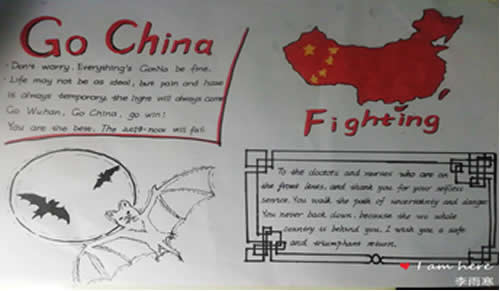 Go China
· Don't worry. Everything's GonNa be fine.
· Life may not be as ideal, but pain and haze
is always temporary. the light will always come
Go Wuhan, Go China, go win!
You are the best. The will fall
Fighting
To the doctors and nurses who are on
the front lines, and thank you for your selfless
service. You walk the path of uncertainty and danger
You never back down, because the whole
country is behind you. I wish you a safe
and triumphant return.
I am here
李雨寒